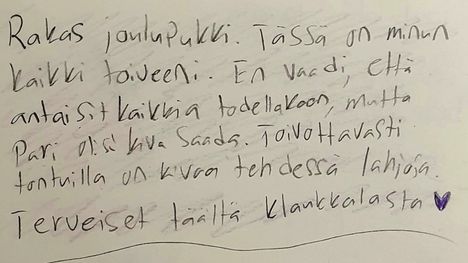 Rakas joulupukki. Tässä on minun
kaikki toiveeni. En vaadi, että
antaisit kaikkia todellakaan, mutta
pari olisi kiva saada. Toivottavasti
tontuilla on kivaa tehdessä lahjoja.
Terveiset täältä Klaukkalasta 💜